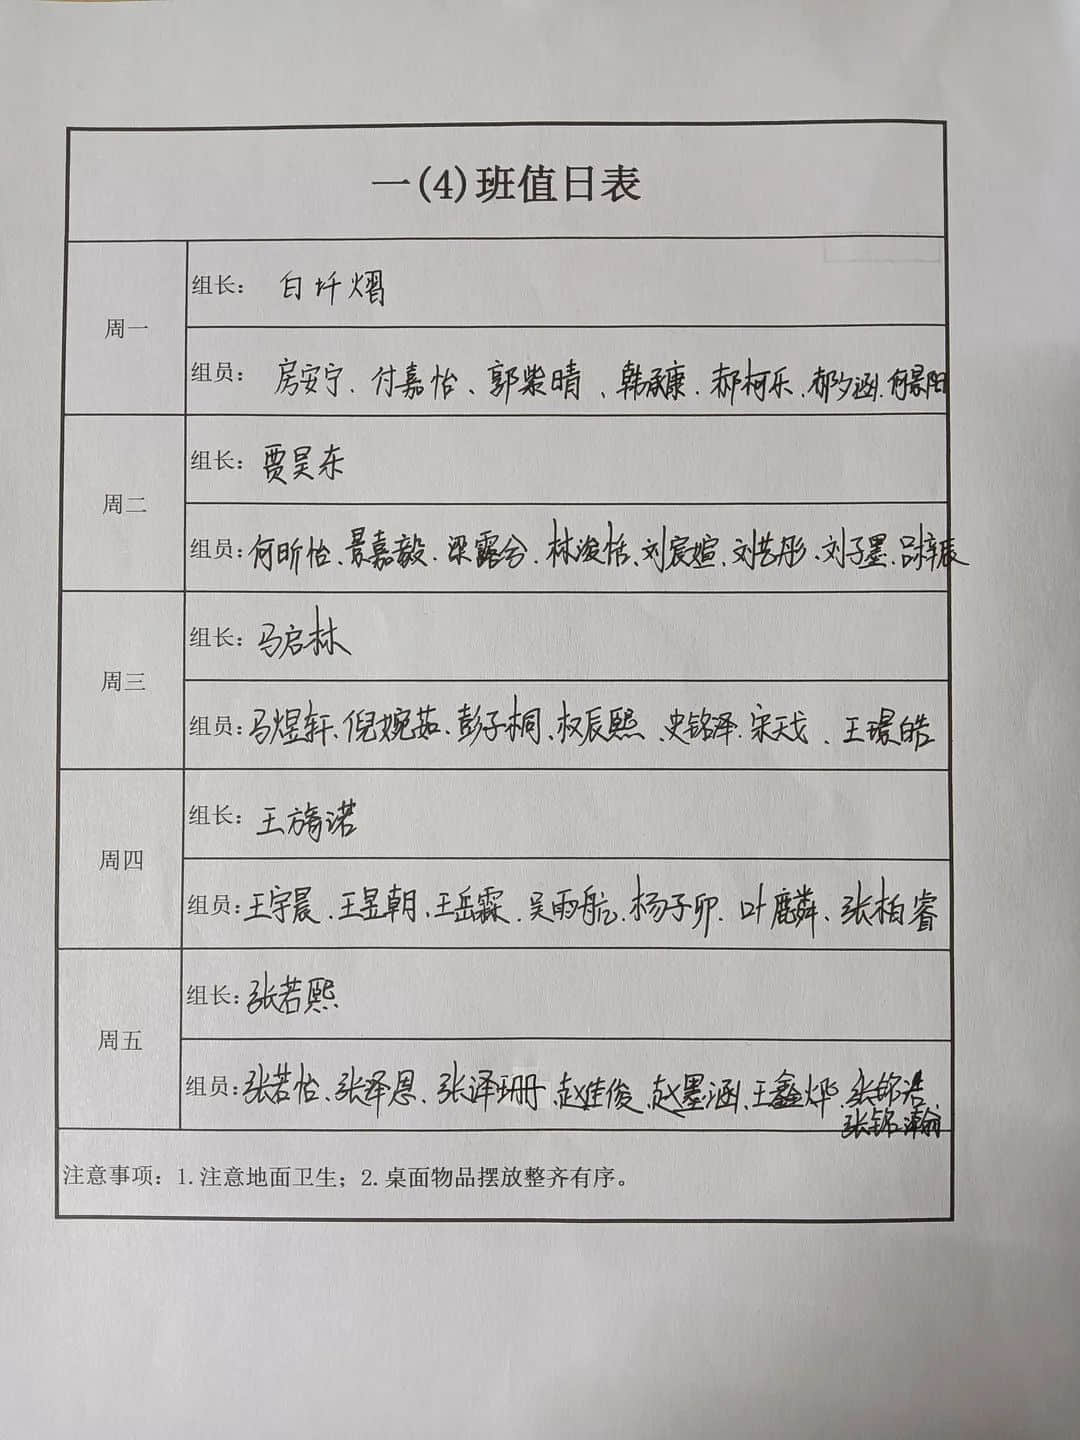 一(4)班值日表
周一
组长： 白圲熠
组员： 房安宁、付嘉怡、郭紫晴、韩承康、郝柯乐、郝夕涵、何景阳
周二
组长： 贾昊东
组员：何昕怡、景嘉毅、梁露兮、林浚恬、刘宸媗、刘艺彤、刘子墨、吕梓辰
周三
组长： 马启林
组员：马煜轩、倪婉茹、彭子桐、权辰熙、史铭泽、宋天戈、王璟皓
周四
组长： 王旖诺
组员：王宇晨、王昱朝、王岳霖、吴雨航、杨子卯、叶麟、张柏睿
周五
组长：张若熙
组员：张若怡、张泽恩、张泽珊、赵佳俊、赵墨涵、王鑫烨、张铭浩、
张铭瀚
注意事项：1.注意地面卫生；2.桌面物品摆放整齐有序。